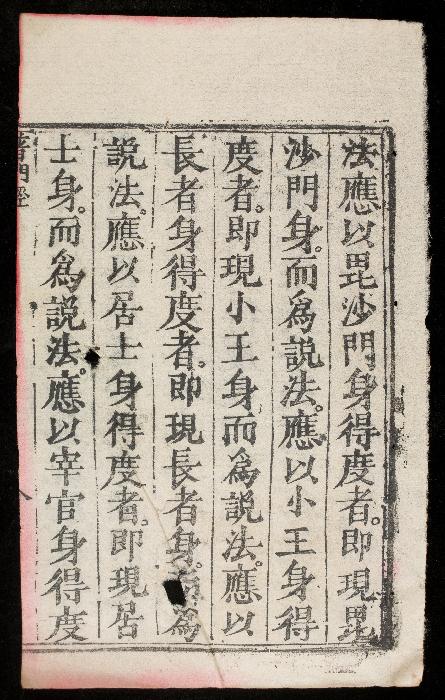 法應以毘沙門身得度者。即現毘
沙門身。而為說法。應以小王身得
度者。即現小王身而為說法。應以
長者身得度者。即現長者身。而為
說法。應以居士身得度者。即現居
士身。而為說法。應以宰官身得度
普門經
八